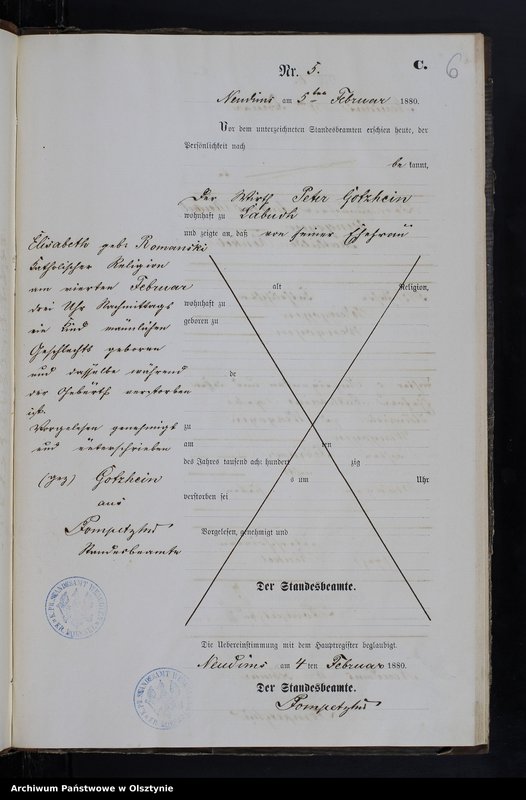 Nr. 5.
C.
6
am 5ten Februar 1880.
Vor dem unterzeichneten Standesbeamten erschien heute, der
Persönlichkeit nach
be kannt,
Der Wirth Peter Gotzhein
wohnhaft zu Labuch
und zeigte an, daß von seiner Ehefrau
Elisabeth geb: Romanski
katholischer Religion
am vierten Februar
drei Uhr Nachmittags
ein Kind männlichen
Geschlechts geboren
und dasselbe während
der Geburt verstorben
ist.
Vorgelesen genehmigt
und unterschrieben
(gez) Gotzhein
aus
Standesbeamte
alt Religion,
wohnhaft zu
geboren zu
de
zu
am ten
des Jahres tausend acht hundert zig
s um Uhr
verstorben sei
Vorgelesen, genehmigt und
Der Standesbeamte.
Die Uebereinstimmung mit dem Hauptregister beglaubigt
am 4 ten Februar 1880.
Der Standesbeamte.
Archiwum Państwowe w Olsztynie